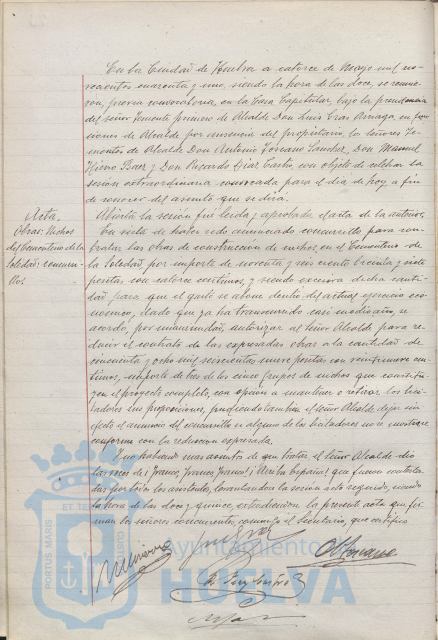 En la Ciudad de Huelva a catorce de Mayo mil no-
vecientos cuarenta y uno, siendo la hora de las doce, se reunie-
ron, previa convocatoria, en la Casa Capitular, bajo la presidencia
del señor Teniente primero de Alcalde Don Luis Gras Arriaga, en fun-
ciones de Alcalde por ausencia del propietario, los señores Te-
nientes de Alcalde Don Antonio Toscano Sanchez, Don Manuel
Hierro Baez y Don Ricardo Diaz Castro, con objeto de celebrar la
sesión extraordinaria convocada para el día de hoy a fin
de conocer del asunto que se dirá.
Abierta la sesión fué leida y aprobada el acta de la anterior.
Acta.
Obras: Nichos
del Cementerio de la
Soledad: concur-
sillo.
En vista de haber sido anunciado concursillo para con-
tratar las obras de construcción de nichos en el Cementerio de
la Soledad por importe de noventa y seis ciento treinta y siete
pesetas con catorce centimos, y siendo excesiva dicha canti-
dad para que el gasto se abone dentro del actual ejercicio eco-
nomico, dado que ya ha transcurrido casi medio año, se
acordó, por unanimidad, autorizar al señor Alcalde para re-
ducir el contrato de las expresadas obras a la cantidad de
cincuenta y ocho mil seiscientas nueve pesetas con veintinueve cen-
timos, importe de tres de los cinco grupos de nichos que constitu-
yen el proyecto completo, con opción a mantener o retirar los lici-
tadores sus proposiciones, pudiendo tambien el señor Alcalde dejar sin
efecto el anuncio del concursillo si alguno de los licitadores no se mostrare
conforme con la reducción expresada.
Y no habiendo mas asuntos de que tratar el señor Alcalde dió
las voces de ¡Franco, Franco, Franco! ¡Arriba España! que fueron contesta-
das por todos los asistentes, levantandose la sesión acto seguido, siendo
la hora de las doce y quince, extendiendose la presente acta que fir-
man los señores concurrentes, conmigo el Secretario, que certifico.
PORTUS MARIS
ET TERRAE
CUSTODIA
Ayuntamiento
HUELVA